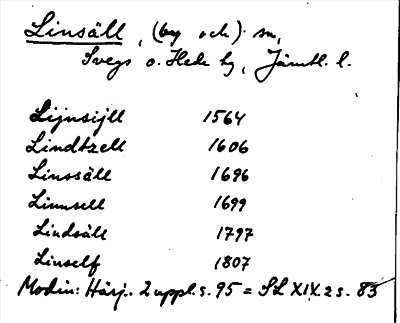 Linsäll, (by och) sn,
Svegs o. Hede hg, Jämtl. l.
Lijnsijll 1564
Lindtzell 1606
Linssäll 1696
Linnsell 1699
Lindsäll 1797
Linself 1807
Modin: Härj. 2 uppl. s. 95 = SL XIX 2 s. 83